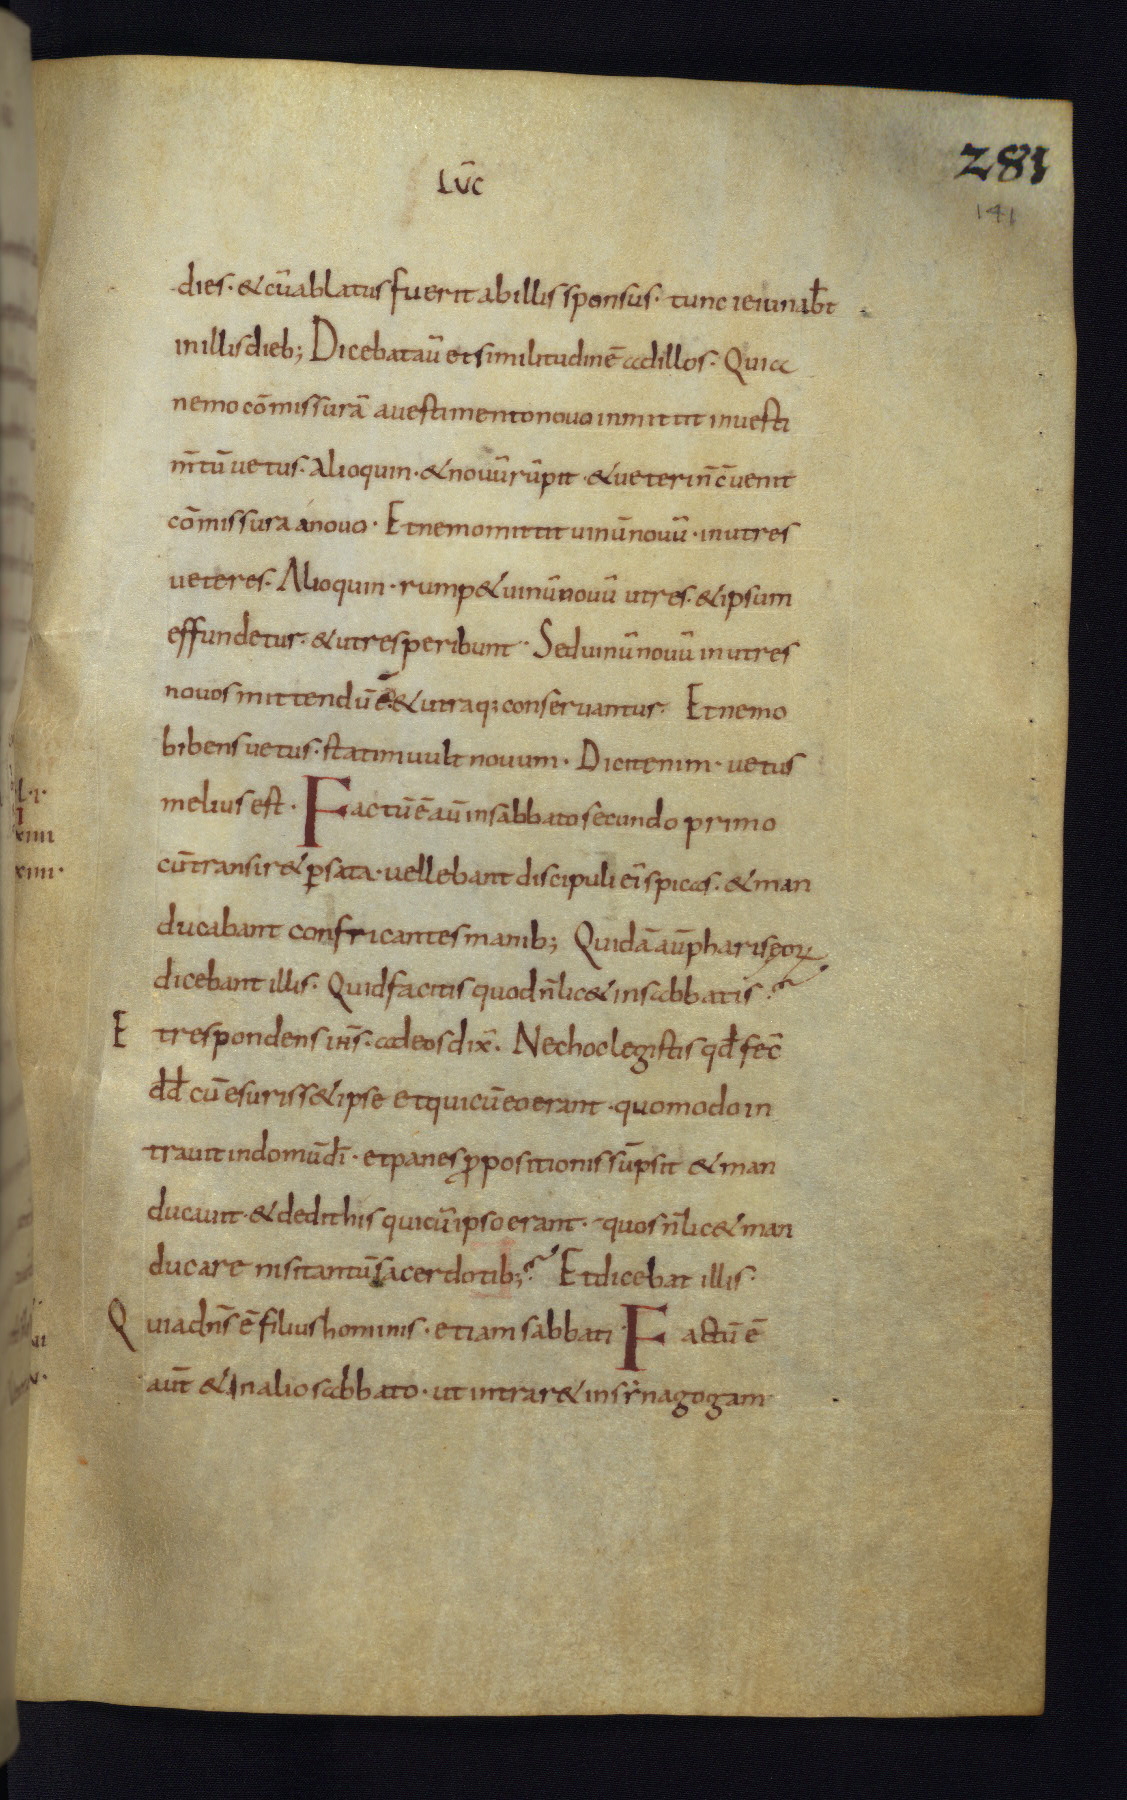 LUC̄
281
141
dies· & cū ablatus fuerit ab illis sponsus· tunc ieiunab̄t
in illis dieb; Dicebat aū et similitudinē ad illos· Quia
nemo cōmissurā a vestimento novo inmittit in vesti
m̄tū vetus· Alioquin· & novū rūpit· & veteri n̄ cvenit
cōmissura a novo· Et nemo mittit vinū novū· in utres
veteres· Alioquin· rump& vinū novū utres· & ipsum
effundetur· & utres peribunt· Sed vinū novū in utres
novos mittendū ē· & utraq; conservantur· Et nemo
bibens vetus· statim vult novum· Dicit enim· vetus
melius est· Factū ē aū in sabbato secundo primo
cū transir& ꝑ sata· vellebant discipuli ei' spicas· & man
ducabant confricantes manib; Quidā aū phariseoꝝ
dicebant illis· Quid facitis quod n̄ lic& in sabbatis?
Et respondens ih̄s· ad eos dix̄· Nec hoc legistis qd̄ fec̄
dd̄ cū esuriss& ipse et qui cū eo erant· quomodo in
travit in domū dī· et panes ꝓpositionis sūpsit & man
ducavit· & dedit his qui cū ipso erant· quos n̄ lic& man
ducare nisi tantū sacerdotib;? Et dicebat illis·
Quia dn̄s ē filius hominis· etiam sabbati· Factū ē
aūt & in alio sabbato· ut intrar& in synagogam